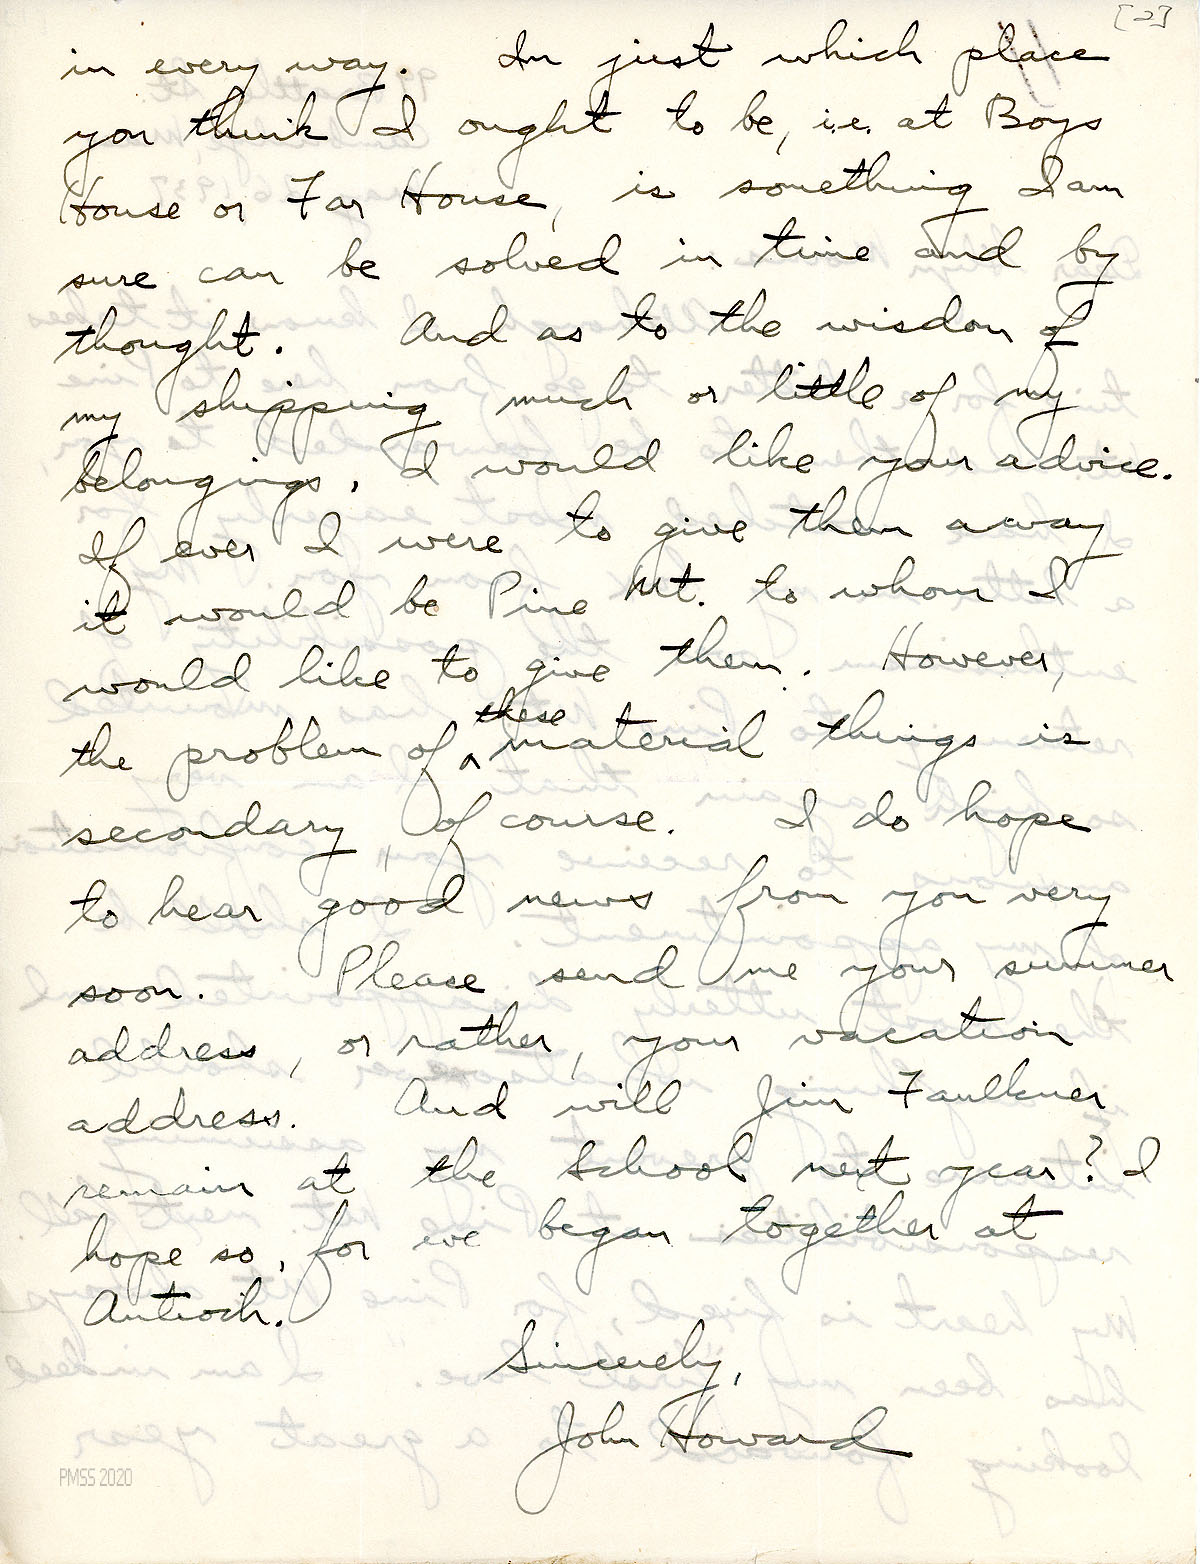 [2]
in every way. In just which place
you think I ought to be, i.e. at Boys
House or Far House, is something I am
sure can be solved in time and by
thought. And as to the wisdom of
my shipping much or little of my
belongings, I would like your advice.
If ever I were to give them away
it would be Pine Mt. to whom I
would like to give them. However,
these
the problem of ^ material things is
secondary of course. I do hope
to hear good news from you very
soon. Please send me your summer
address, or rather, your vacation
address. And will Jim Faulkner
remain at the School next year? I
hope so, for we began together at
Antioch.
Sincerely,
John Howard
PMSS 2020